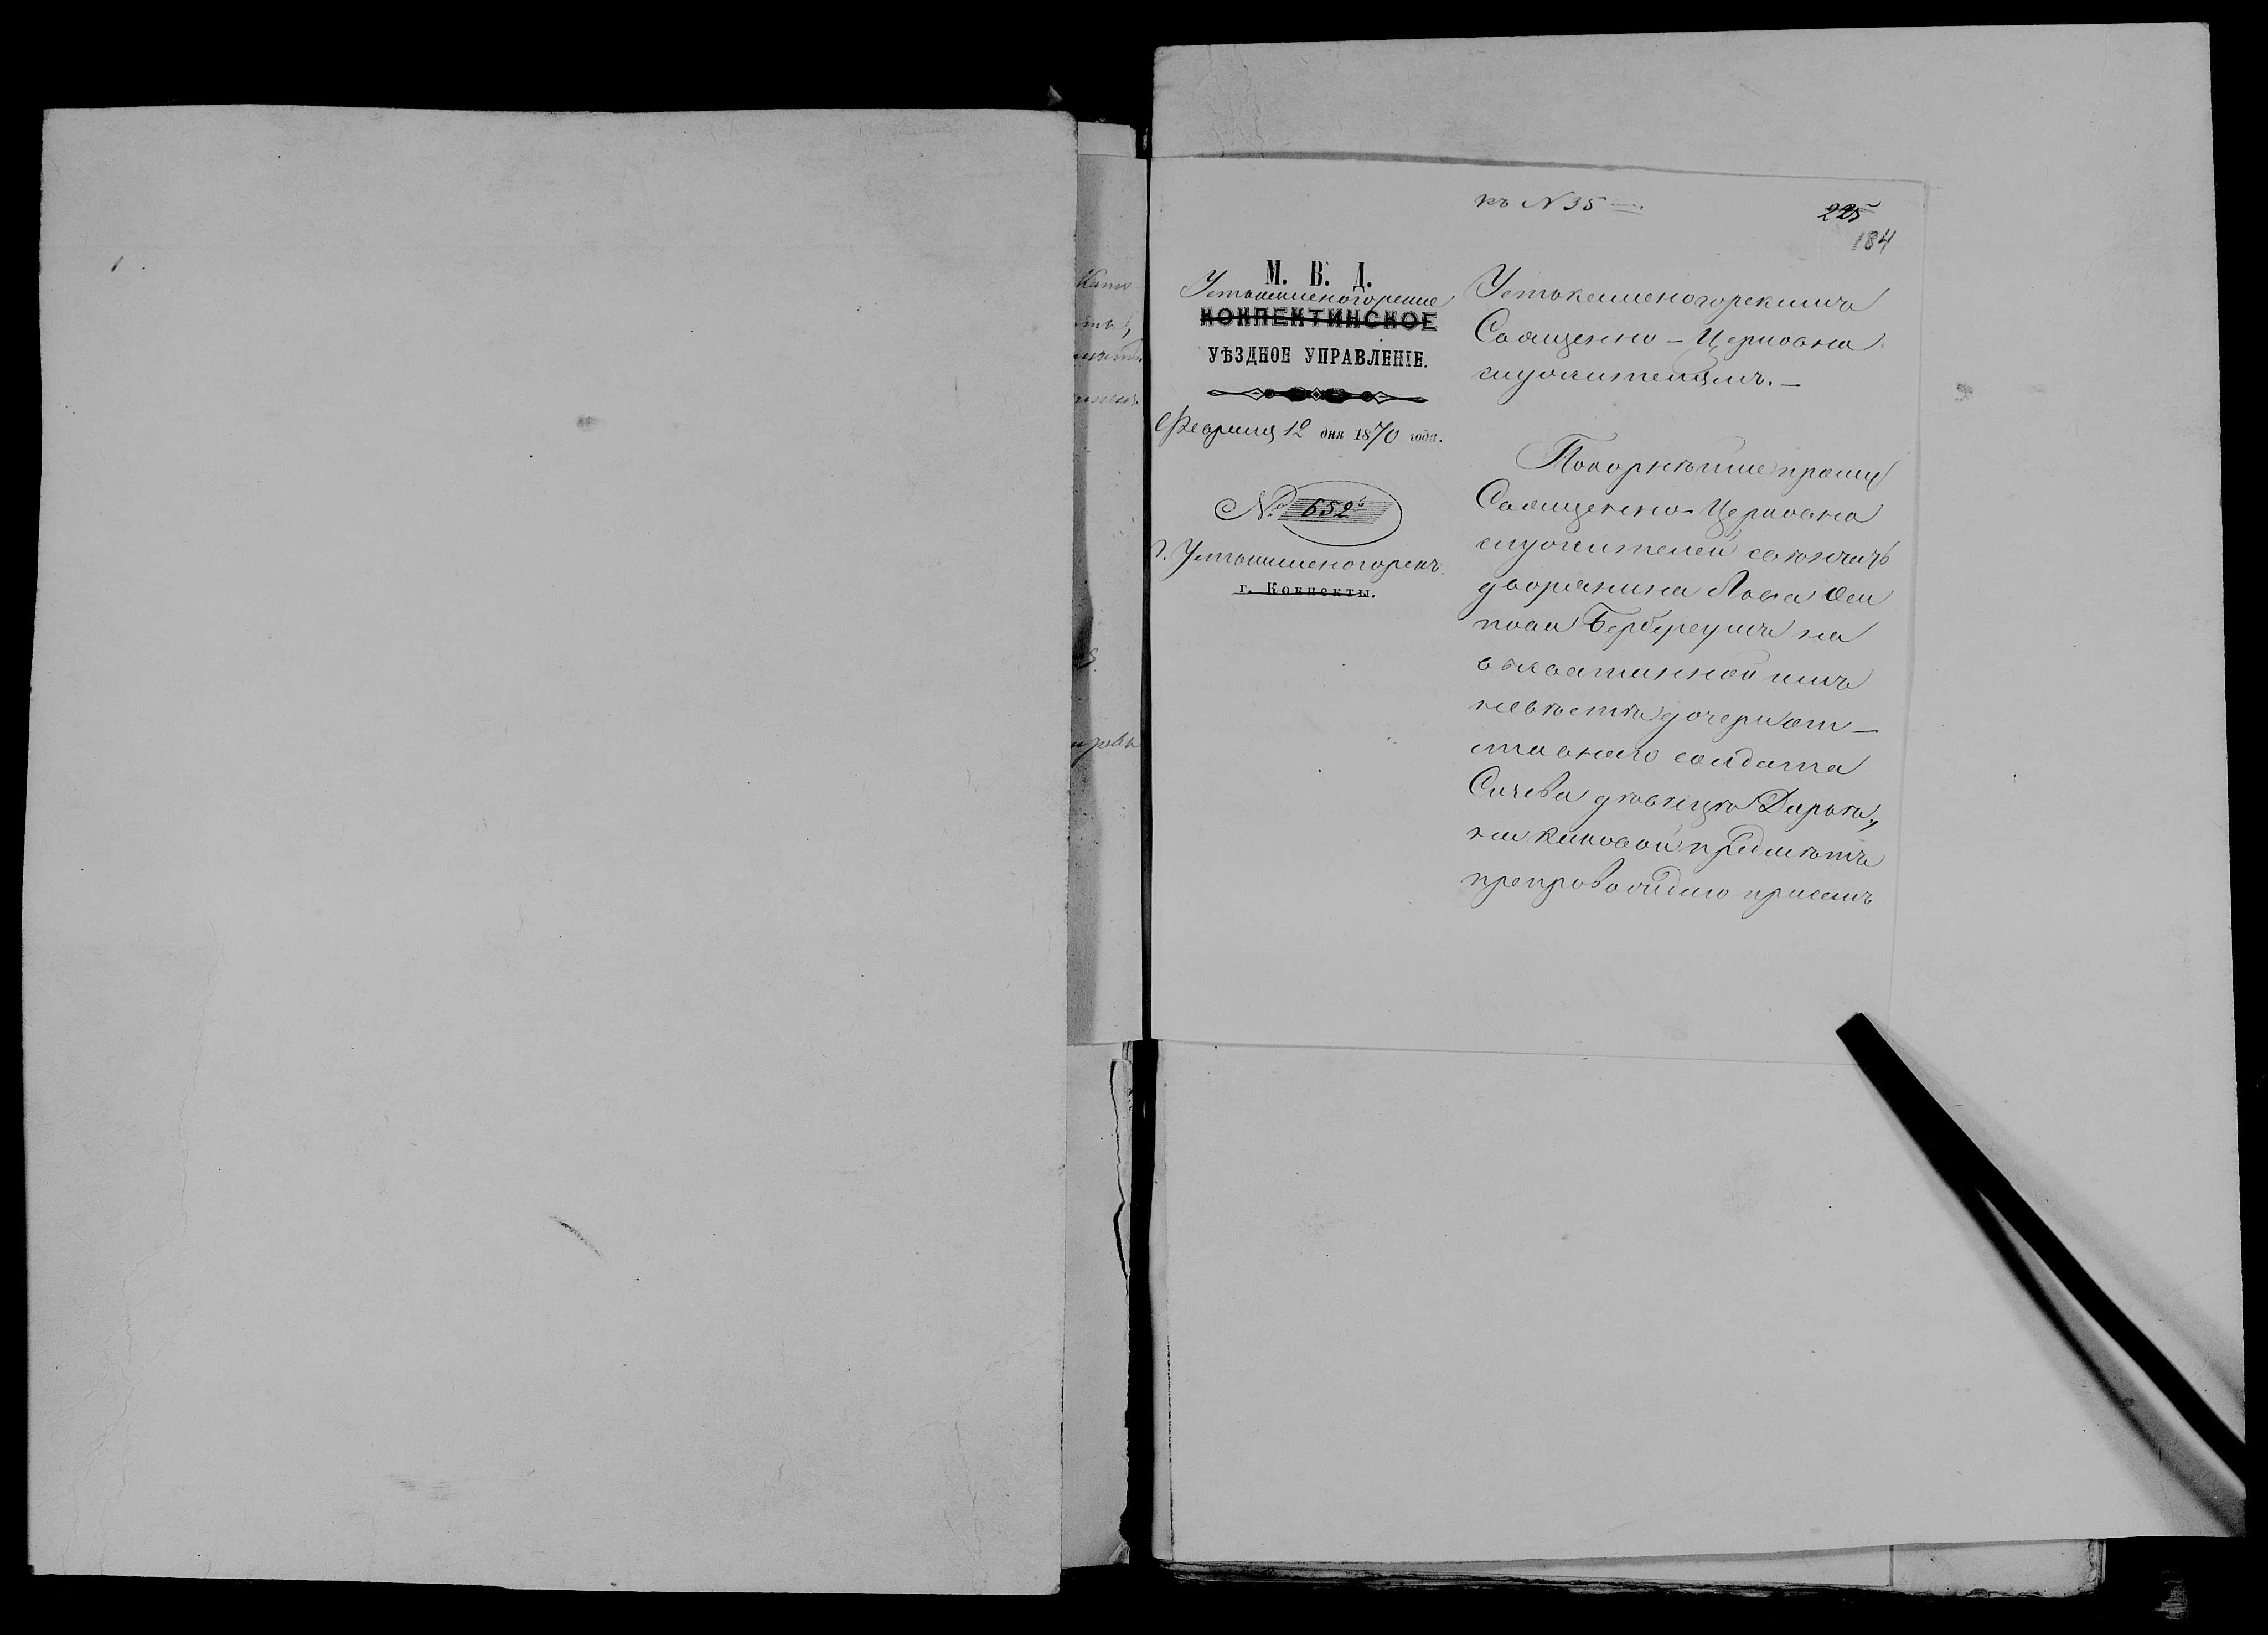 къ N 35
225
184
М. В. Д.
Устькаменогорское
КОКПЕКТИНСКОЕ
УѢЗДНОЕ УПРАВЛЕНІЕ.
Февраля 12 дня 1870 года.
№ 652
г. Устькаменогорскъ.
г. Кокпекты.
Устькаменогорскимъ
Священно-Церковно
служителямъ.—
Покорнѣйше прошу
Священно-Церковно
служителей свѣнчать
дворянина Льва Оси
пова Берберецъ на
высватанной имъ
невѣстѣ дочери от-
ставнаго солдата
Сичева дѣвицѣ Дарьѣ,
на каковой предметъ
препровождаю присемъ